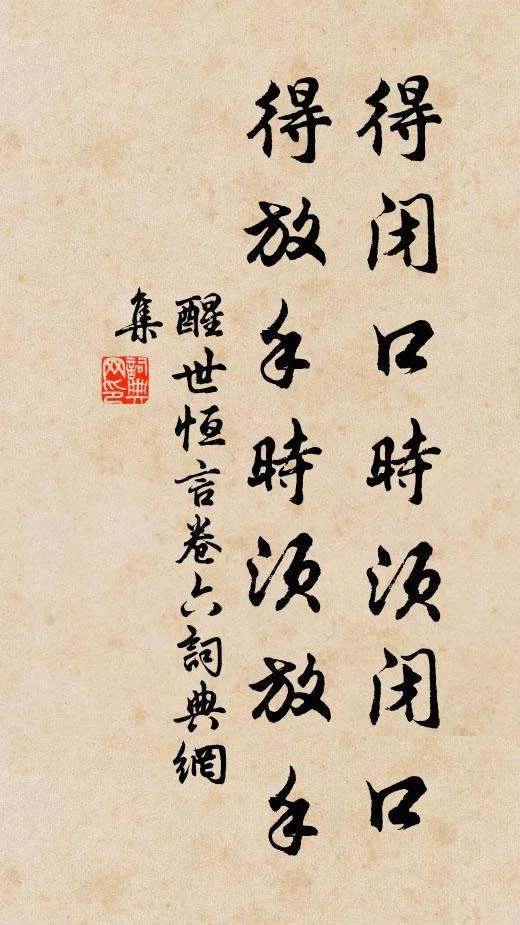 得闭口時须闭口
得放手時须放手
醒世恒言卷六詞典網
集
詞典网印